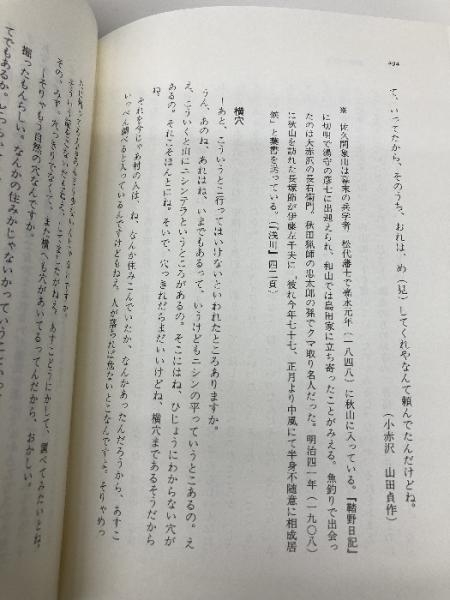 494
て、いってたから、そのうち、おれは、め(見)してくれやなんて頼んでたんだけどね。
(小赤沢 山田貞作)
※ 佐久間象山は幕末の兵学者、松代藩士で嘉永元年(一八四八)に秋山に入っている。『鞜野日記』
に切明で湯守の彦七に出迎えられ、和山では島田家に立ち寄ったことがみえる。魚釣りで出会っ
たのは大赤沢の長右衛門。秋田猟師の忠太郎の孫でクマ取り名人だった。明治四一年(一九〇八)
に秋山を訪れた長塚節が伊藤左千夫に、「彼れ今年七十七、正月より中風にて半身不随意に相成居
候」と葉書を送っている。(『浅川』四二頁)
横穴
―あと、こういうとこ行ってはいけないといわれたところありますか。
うん、あのね、あれはね、いまでもあるって、いうけどもニシンの平っていうとこあるの。え
え、こういくと山にニシンデラというところがあるの。そこにはね、ひじょうにわからない穴が
あるの。それこそほんとにね。そいで、穴っきれだらまだいいけどね、横穴まであるそうだから
ね。
それを今じゃあ村の人は、ね、なんか住みこんでいたか、なんかあったんだろうから、あすこ
いっぺん調べると入っているんですけどもねえ、人が落ちれば危ないとこなんですよ。そりゃめっ
―そりゃもう自然の穴なんですか。
掘ったもんらしい。なんかの住みかじゃないかっていうこと